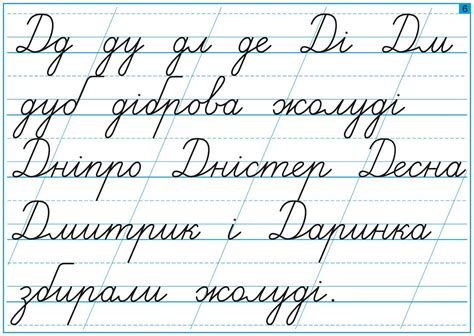 6
Дд ду дл де Ді Дм
дуб діброва жолуді
Дніпро Дністер Десна
Дмитрик і Даринка
збирали жолуді.